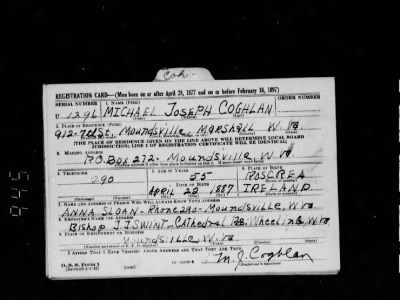 Coh-
REGISTRATION CARD—(Men born on or after April 28, 1877 and on or before February 16, 1897)
SERIAL NUMBER 1. NAME (Print) ORDER NUMBER
U 1296 MICHAEL JOSEPH COGHLAN
2. PLACE OF RESIDENCE (Print)
912-7th St. Moundsville, Marshall W. Va
[THE PLACE OF RESIDENCE GIVEN ON THE LINE ABOVE WILL DETERMINE LOCAL BOARD
JURISDICTION; LINE 2 OF REGISTRATION CERTIFICATE WILL BE IDENTICAL]
3. MAILING ADDRESS
P.O. Box 272- Moundsville, W. Va
4. TELEPHONE 5. AGE IN YEARS 6. PLACE OF BIRTH
290 55 ROSCREA
DATE OF BIRTH
APRIL 23 1887 IRELAND
7. NAME AND ADDRESS OF PERSON WHO WILL ALWAYS KNOW YOUR ADDRESS
ANNA SLOAN- Phone 290- Moundsville, W Va
8. EMPLOYER'S NAME AND ADDRESS
Bishop J. J. SWINT- Cathedral Wheeling, W Va
9. PLACE OF EMPLOYMENT OR BUSINESS
Moundsville, W. Va
I AFFIRM THAT I HAVE VERIFIED ABOVE ANSWERS AND THAT THEY ARE TRUE.
D. S. S. Form 1 M. J. Coghlan
945